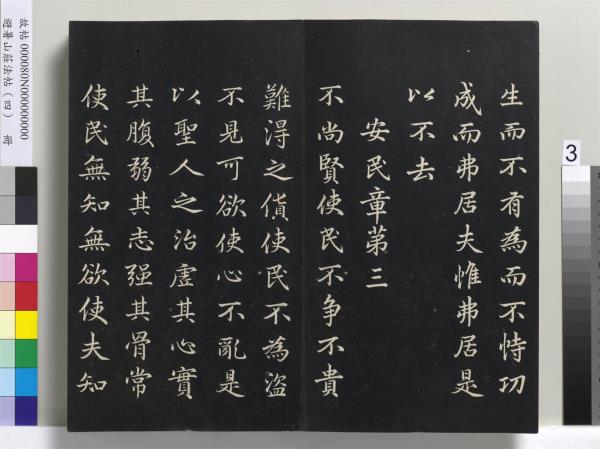 生而不有為而不恃功
成而弗居夫惟弗居是
以不去
安民章第三
不尚賢使民不争不貴
難淂之貨使民不為盜
不見可欲使心不亂是
以聖人之治虛其心實
其腹弱其志强其骨常
使民無知無欲使夫知
故帖 000080N000000000
避暑山莊法帖（四） 冊
3